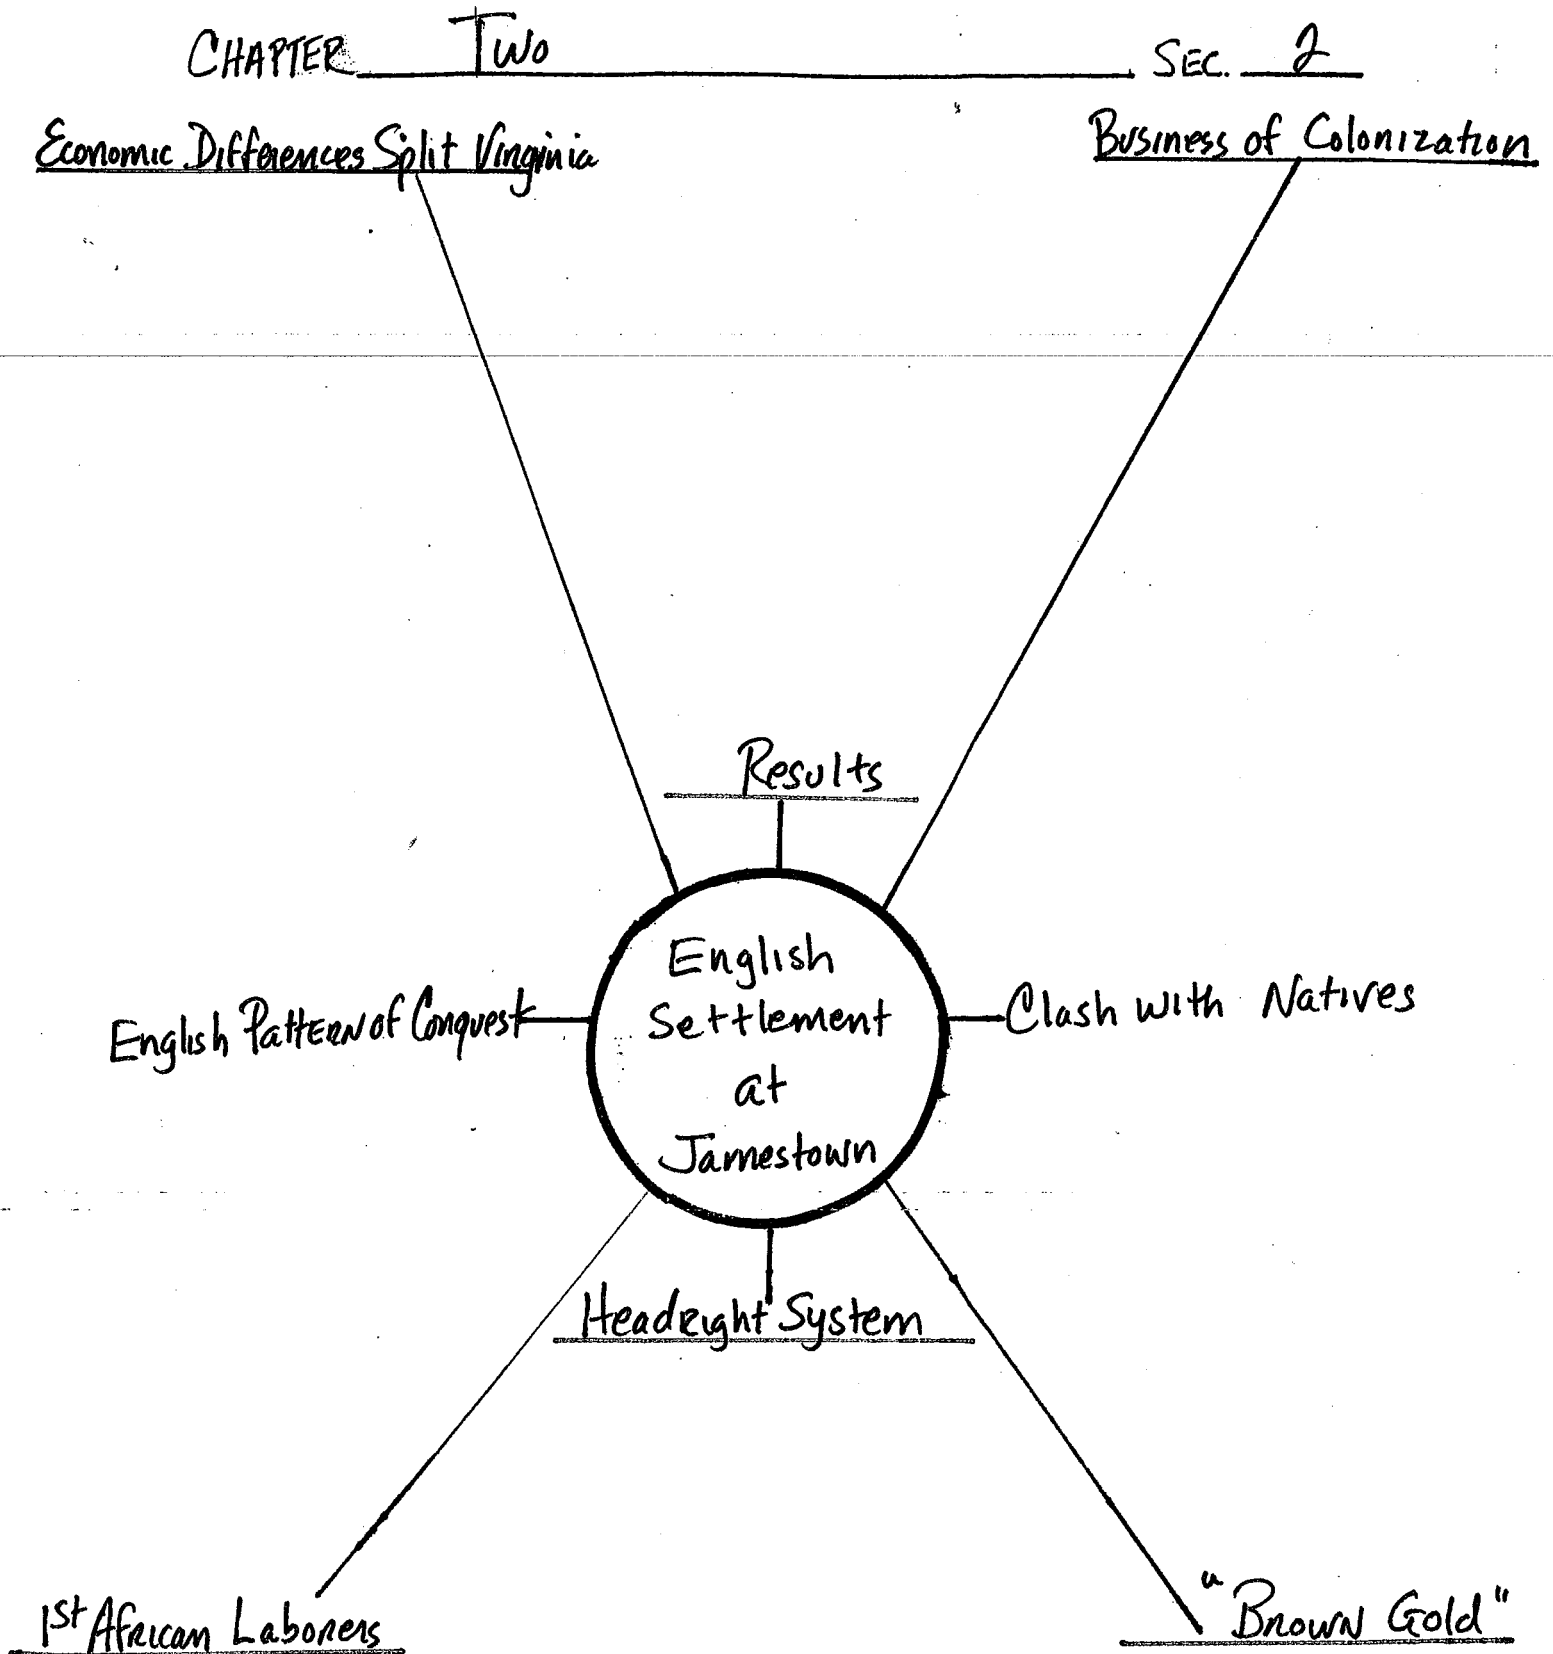 CHAPTER Two SEC. 2
Economic Differences Split Virginia
Business of Colonization
Results
English
Settlement
at
Jamestown
English Pattern of Conquest
Clash with Natives
Headright System
1st African Laborers
"Brown Gold"